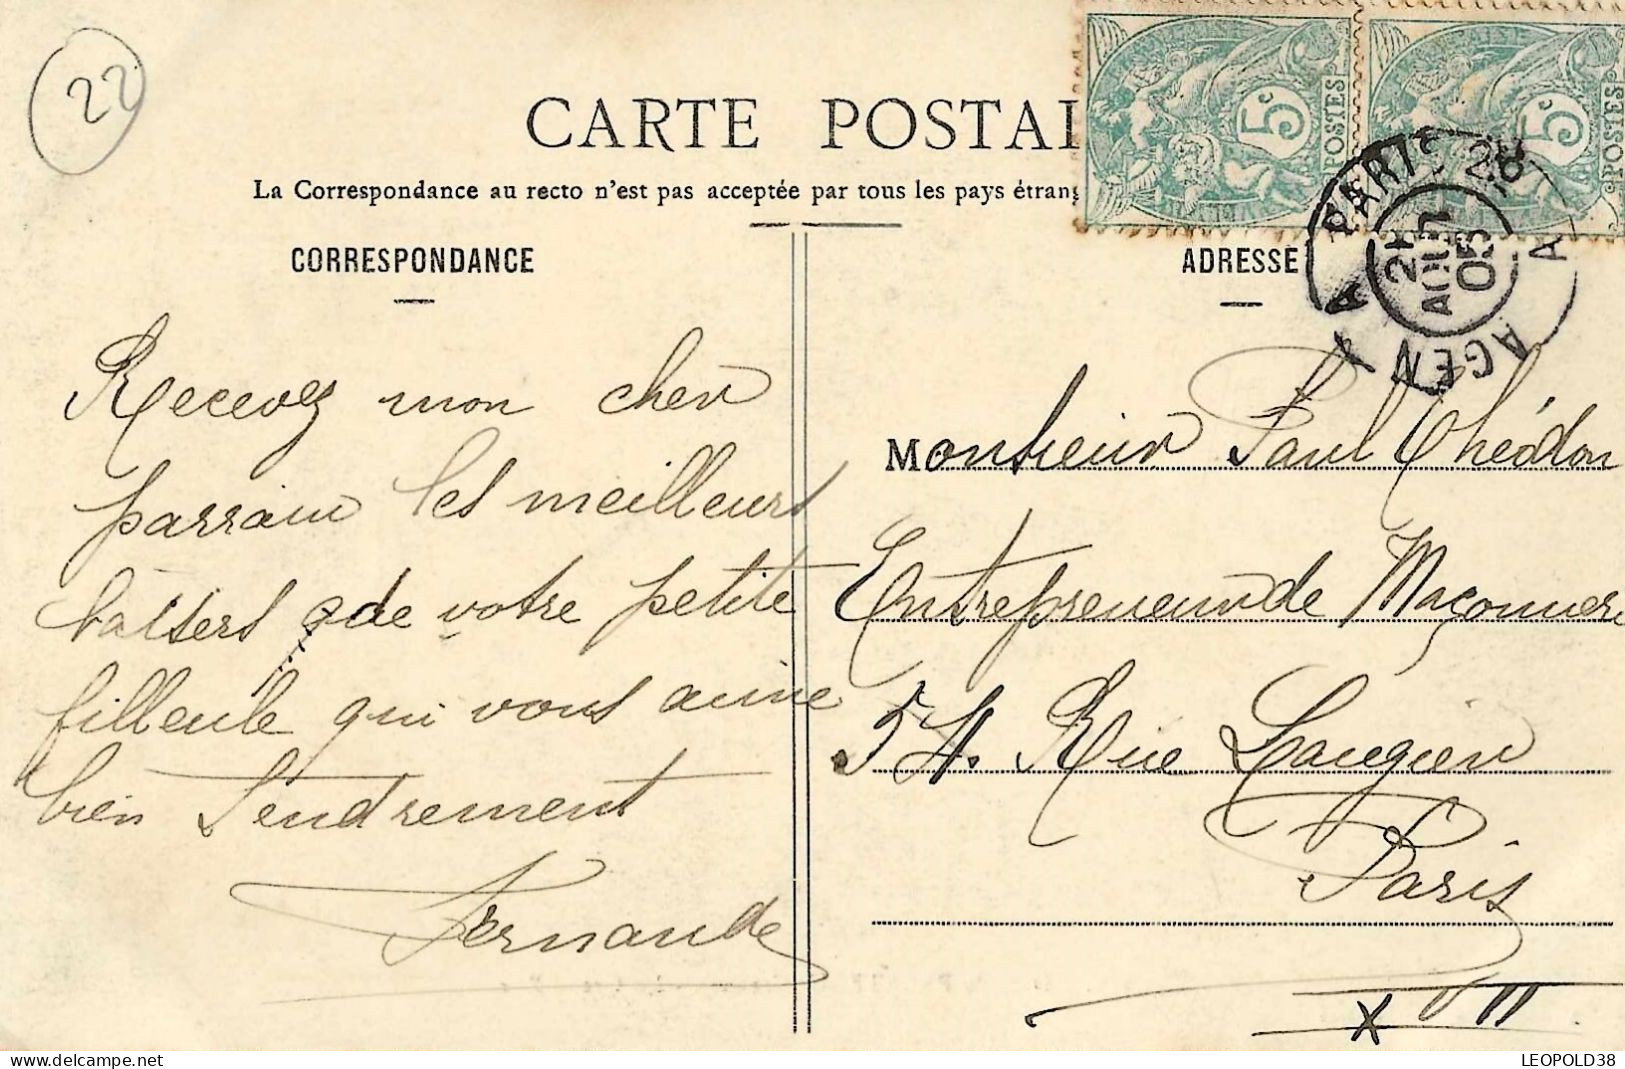 22
CARTE POSTAL
La Correspondance au recto n'est pas acceptée par tous les pays étrang
CORRESPONDANCE
Recevez mon cher
parrain les meilleurs
baisers de votre petite
filleule qui vous aime
bien Tendrement
Fernande
5c POSTES
5c POSTES
PARIS
AOUT
05
AGEN A
ADRESSE
Monsieur Paul Thédlon
Entrepreneur de Maçonnerie
54. Rue Laugier
Paris
XVII
LEOPOLD38